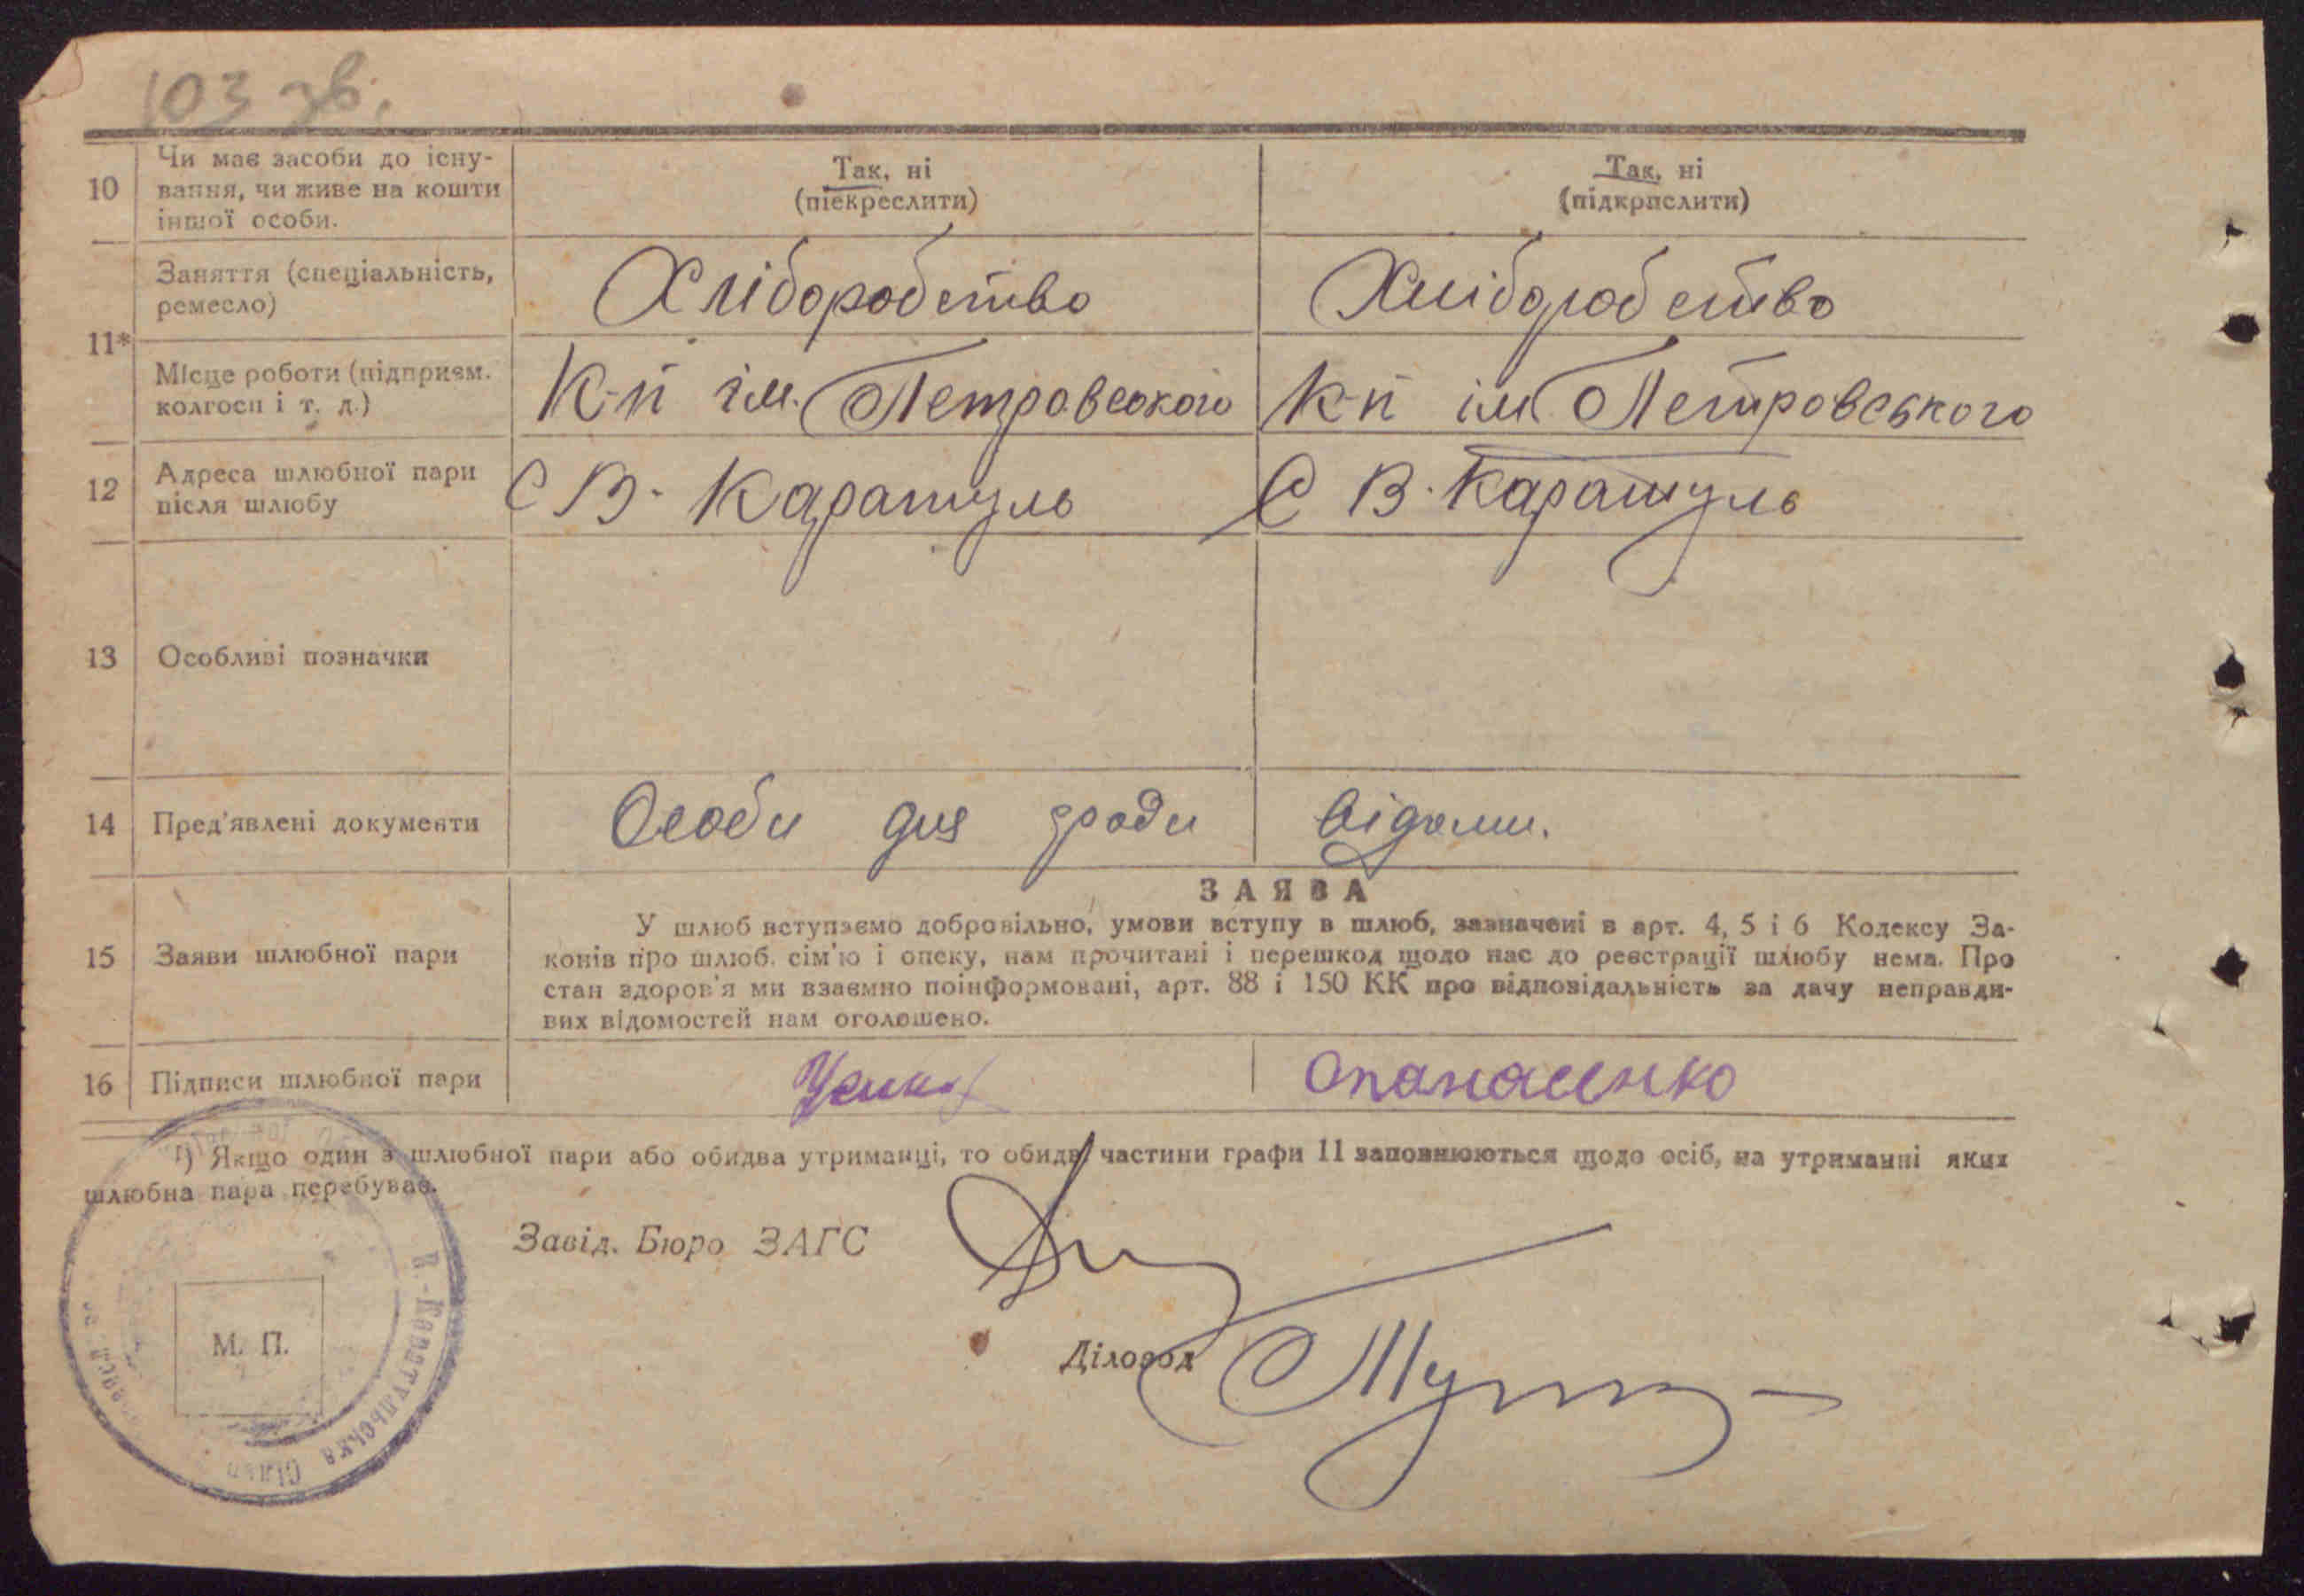 103 зв.
10 Чи має засоби до існу-
вання, чи живе на кошти
іншої особи.
Так, ні
(піекреслити)
Так, ні
(підкрпслити)
11*
Заняття (спеціальність,
ремесло)
Хліборобство
Хліборобство
Місце роботи (підприєм.
колгосп і т. д.)
К-п ім. Петровського
К-п ім. Петровського
12 Адреса шлюбної пари
після шлюбу
С В. Каратуль
С В. Каратуль
13 Особливі позначки
14 Пред'явлені документи
Особи для зради відоми.
15 Заяви шлюбної пари
ЗАЯВА
У шлюб вступаємо добровільно, умови вступу в шлюб, зазначені в арт. 4, 5 і 6 Кодексу За-
конів про шлюб. сім'ю і опеку, нам прочитані і перешкод щодо нас до реєстрації шлюбу нема. Про
стан здоров'я ми взаємно поінформовані, арт. 88 і 150 КК про відповідальність за дачу неправди-
вих відомостей нам оголошено.
16 Підписи шлюбної пари
Усик
Опанасенко
¹) Якщо один з шлюбної пари або обидва утриманці, то обидві частини графи 11 заповнюються щодо осіб, на утриманні яких
шлюбна пара перебуває.
Завід. Бюро ЗАГС
Діловод
М. П.
В.-Каратульська сільр